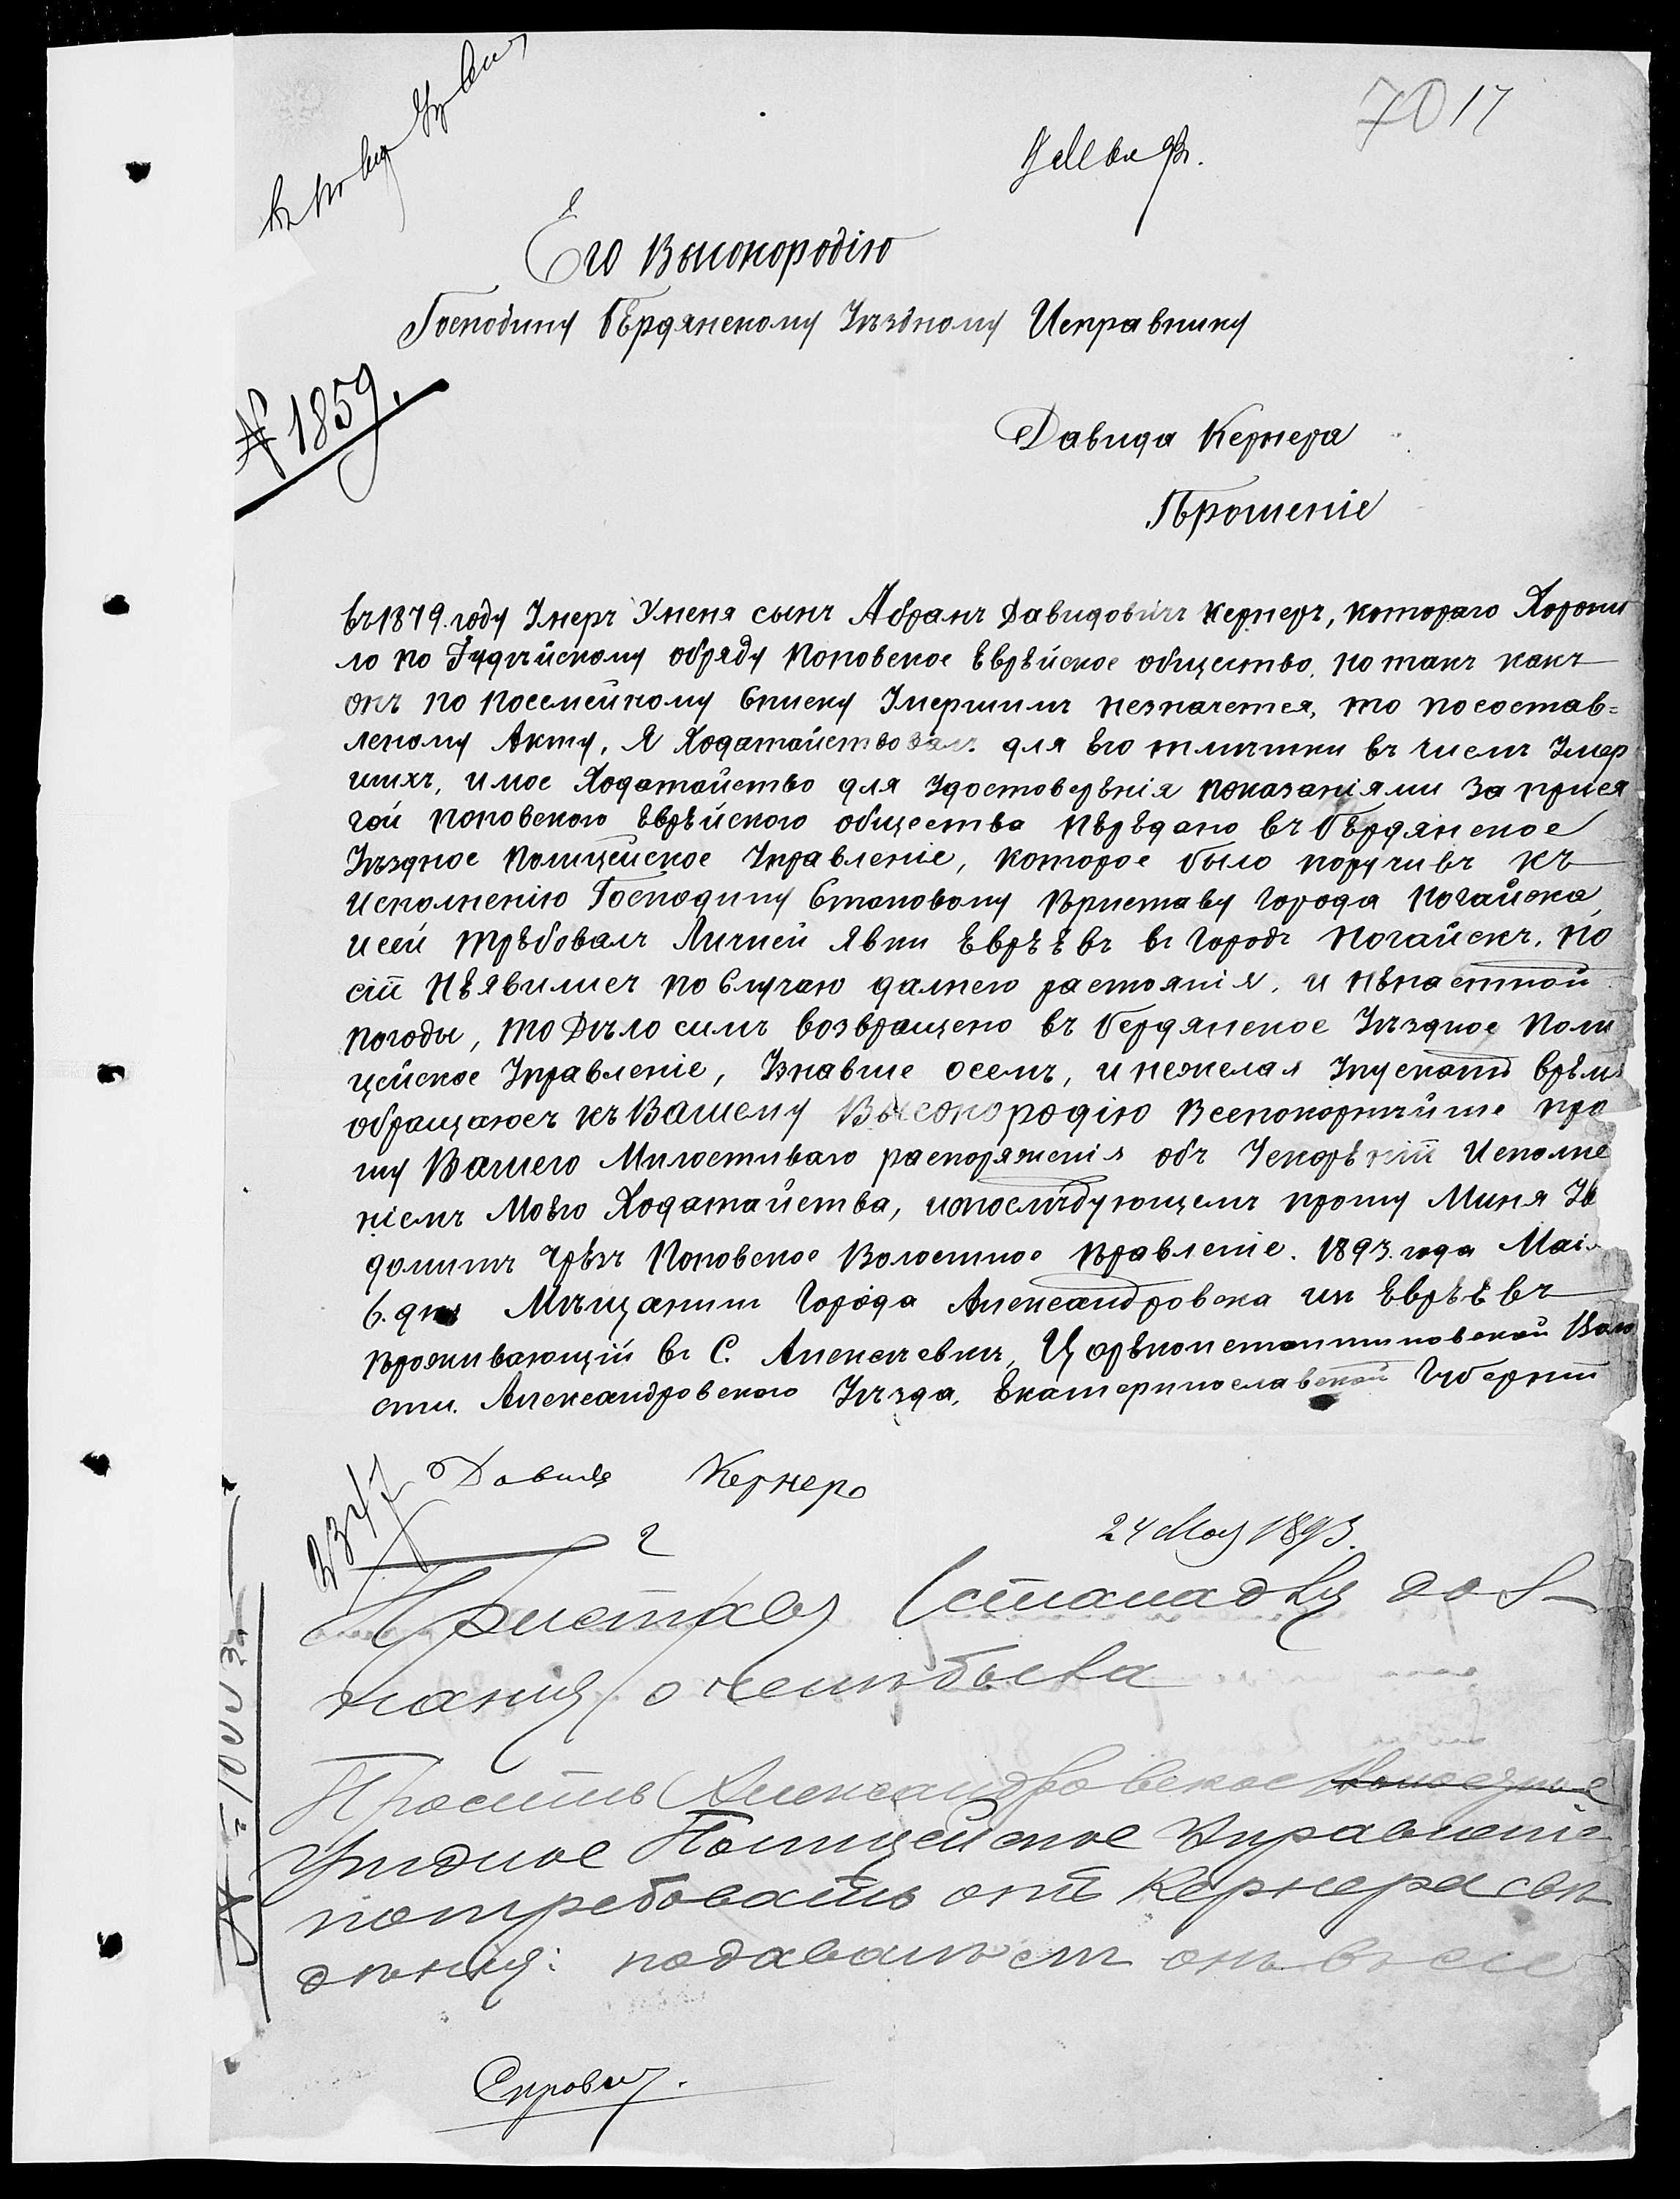 70 17
Его Высокородію
Господину Бѣрдянскому Уѣздному Исправнику
№ 1859.
Давида Кернера
Прошеніе
въ 1879. году Умеръ Уменя сынъ Абрамъ Давидовичъ Кернеръ, котораго Хорони
ло по Іудѣйскому обряду Поповское Еврѣйское общество, но такъ какъ
онъ по посемейному Списку Умершимъ незначется, то по состав=
леному Акту, Я Ходатайствовалъ для Его отмѣтки въ числѣ Умер
шихъ, и мое Ходатайство для Удостоверѣнія показаніями За прися
гой Поповского Еврѣйского общества Пѣрѣдано въ Бѣрдянское
Уѣздное Полицейское Управленіе, которое было поручивъ къ
Исполненію Господину Становому Приставу Города Ногайска,
и сей трѣбовалъ Личней Явки Еврѣѣвъ въ Городъ Ногайскъ, Но
сіи Нѣявилисъ по Случаю далнего растоянія, и нѣнастной
погоды, то Дѣло симъ возвращено въ Бердянское Уѣздное Поли
цейское Управленіе, Узнавше осемъ, и нежелая Упускать врѣмя
обращаюсъ къ Вашему Высокородію Всепокорнѣйше про
шу Вашего Милостиваго распоряженія объ Ускорѣніи Исполне
ніемъ Моѣго Ходатайства, ипослѣдующемъ прошу Миня Ув
домитъ Чрѣзъ Поповское Волостное Правленіе. 1893. года Маія
6. дня Мѣщанинъ Города Александровска изъ Еврѣѣвъ
Проживающій въ С. Алексѣевкѣ, Царѣконстантиновской Воло
сти. Александровского Уѣзда, Екатеринославской Губерніи
Давидъ Кернеръ
2347
24 Мая 1893.
Приставу 2 стана для доз-
нанія о
Просить Александровское
Уѣздное Полицейское Управленіе
потребовать отъ Кернера свѣ
дѣнія: подавалъ ли онъ